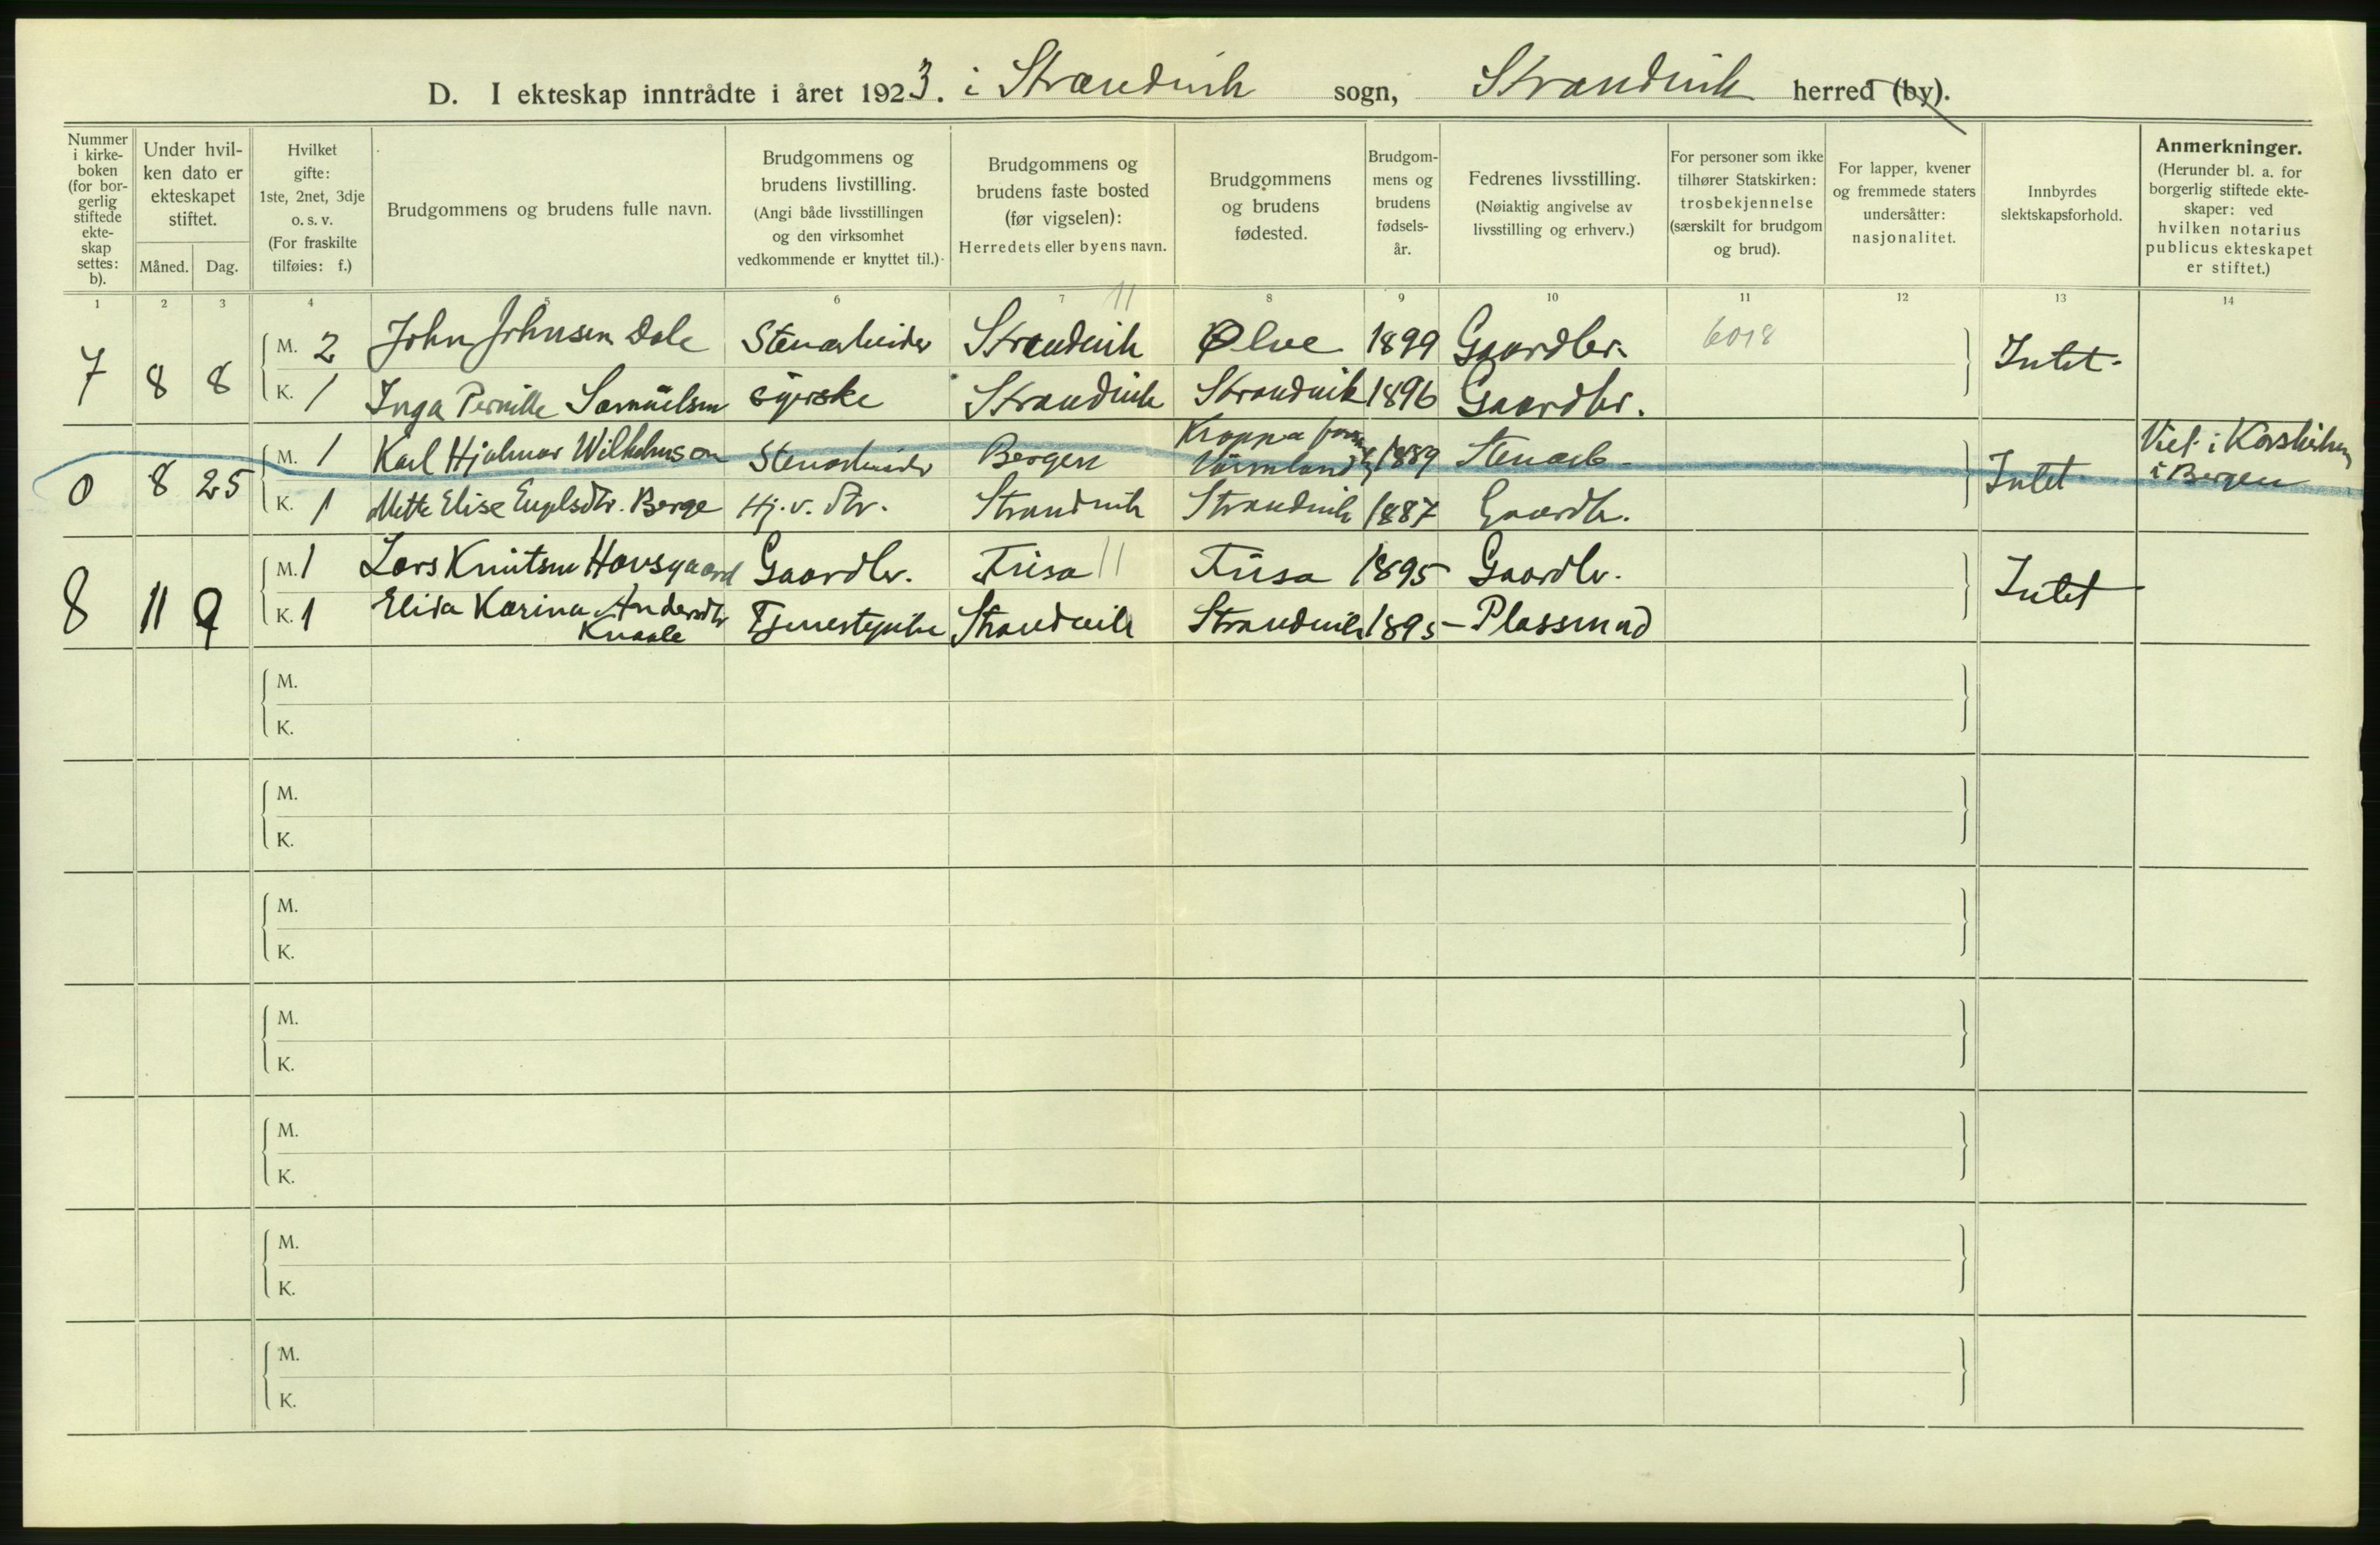 D. I ekteskap inntrådte i året 1923. i Strandvik sogn, Strandvik herred (by).
Nummer i kirke-boken (for bor-gerlig stiftede ekte-skap settes: b).
Under hvil-ken dato er ekteskapet stiftet.
Måned. Dag.
Hvilket gifte: 1ste, 2net, 3dje o. s. v. (For fraskilte tilføies: f.)
Brudgommens og brudens fulle navn.
Brudgommens og brudens livstilling. (Angi både livsstillingen og den virksomhet vedkommende er knyttet til.)
Brudgommens og brudens faste bosted (før vigselen): Herredets eller byens navn.
Brudgommens og brudens fødested.
Brudgom-mens og brudens fødsels-år.
Fedrenes livsstilling. (Nøiaktig angivelse av livsstilling og erhverv.)
For personer som ikke tilhører Statskirken: trosbekjennelse (særskilt for brudgom og brud).
For lapper, kvener og fremmede staters undersåtter: nasjonalitet.
Innbyrdes slektskapsforhold.
Anmerkninger. (Herunder bl. a. for borgerlig stiftede ekte-skaper: ved hvilken notarius publicus ekteskapet er stiftet.)
1 2 3 4 5 6 7 8 9 10 11 12 13 14
11
7 8 8 M. 2 John Johnsen Dale Stenarbeider Strandvik Ølve 1899 Gaardbr. 6018 Intet.
K. 1 Inga Pernille Samuelsen syerske Strandvik Strandvik 1896 Gaardbr.
0 8 25 M. 1 Karl Hjalmar Wilhelmson Stenarbeider Bergen Kroppa Värmland 1889 Stenarb. Intet Viet i Korskirken i Bergen
K. 1 Mette Elise Engelsdtr. Berge Hj. v. dtr. Strandvik Strandvik 1887 Gaardb.
8 11 9 M. 1 Lars Knutsen Havsgaard Gaardbr. Fusa 11 Fusa 1895 Gaardbr. Intet
K. 1 Elida Karina Andersdtr Tjenestepike Strandvik Strandvik 1895 Plassmand
M.
K.
M.
K.
M.
K.
M.
K.
M.
K.
M.
K.
M.
K.